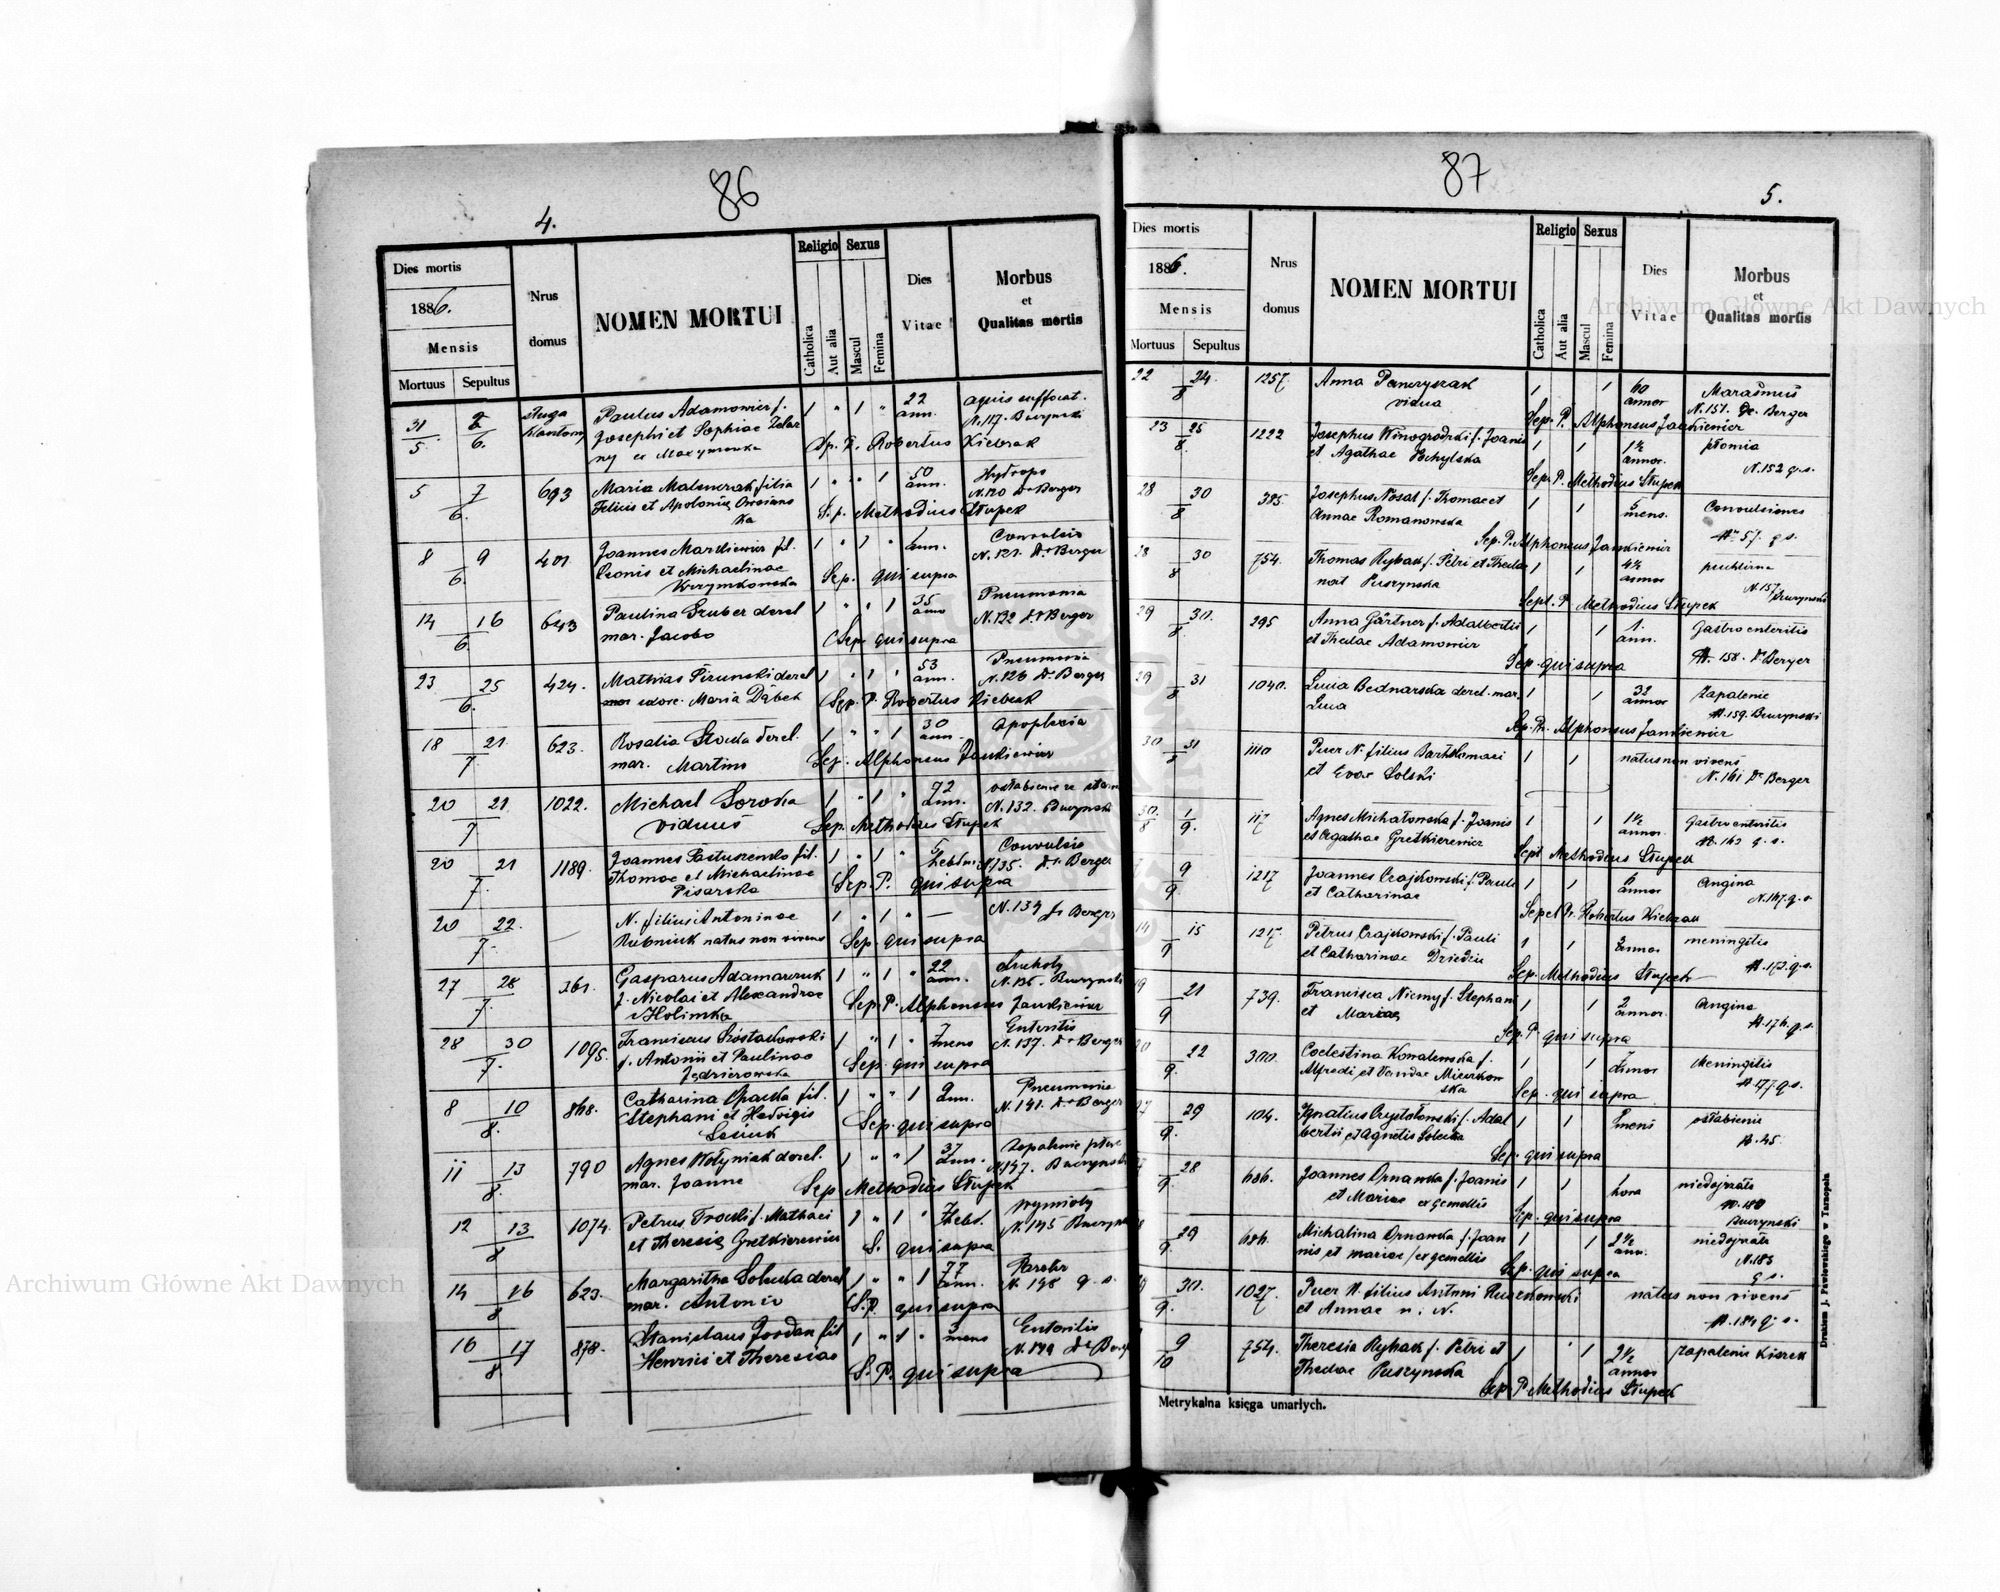 86
4.
Dies mortis
1886.
Mensis
Mortuus
Sepultus
Nrus
domus
NOMEN MORTUI
Religio
Catholica
Aut alia
Sexus
Mascul
Femina
Dies
Vitae
Morbus
et
Qualitas mortis
31/5 2/6 sługa Paulus Adamowicz f. 1 " 1 " 22 ann. aquis suffocat.
Josephi et Sophiae Zelaz N. 117. Buczynski
ny ex
Sep. P. Robertus Kiebzak
5 7/6 693 Maria filia 1 " " 1 50 ann. Hydrops
Felicis et Apoloniae N. 120 Dr Berger
ka
S. p. Methodius Słupek
8 9/6 401 Joannes Markiewicz fil. 1 " 1 " 1 ann. Convulsio
Leonis et Michaelinae N. 121. Dr Berger
Sep. qui supra
14 16/6 643 Paulina Gruber derel 1 " " 1 35 anno Pneumonia
mar. Jacobo N. 132 Dr Berger
Sep. qui supra
23 25/6 424. Mathias derel 1 " 1 " 53 ann. Pneumonia
uxore Maria Dąbek N. 126 Dr Berger
Sep. P. Robertus Kiebzak
18 21/7 623. Rosalia derel. 1 " " 1 30 ann. apoplexia
mar. Martino
Sep. Alphonsus Jankiewicz
20 21/7 1022. Michael Soroka 1 " 1 " 72 ann. osłabienie ze
viduus N. 132. Buczynski
Sep. Methodius Słupek
20 21/7 1189. Joannes Pastuszenko fil. 1 " 1 " 5 hebdm. Convulsio
Thomae et Michaelinae N. 135. Dr Berger
Pisarska
Sep. P. qui supra
20 22/7 N. filius Antoninae 1 " 1 " — N. 134 Dr Berger
Rubniuk natus non vivens
Sep. qui supra
27 28/7 361. Gasparus Adamarczuk 1 " 1 " 22 ann. Suchoty
f. Nicolai et Alexandrae N. 136. Buczynski
Holinka
Sep. P. Alphonsus Jankiewicz
28 30/7 1095. Franciscus Szostakowski 1 " 1 " 7 mens Enteritis
f. Antonii et Paulinae N. 137. Dr Berger
Jędrzejowska
Sep. qui supra
8 10/8 868. Catharina fil. 1 " " 1 2 ann. Pneumonia
Stephani et Hedvigis N. 141. Dr Berger
Sep. qui supra
11 13/8 790 Agnes Wołyniak derel. 1 " " 1 37 ann. Zapalenie płuc
mar. Joanne N. 147. Buczynski
Sep. Methodius Słupek
12 13/8 1074. Petrus f. Mathaei 1 " 1 " 7 hebd. wymioty
et Theresia Gretkierewicz N. 145 Buczynski
S. qui supra
14 16/8 623. Margaritha Solecka derel 1 " " 1 77 ann.
mar. Antonio N. 148 q. s.
S. P. qui supra
16 17/8 878. Stanislaus Jordan fil 1 " 1 " 3 mens Enteritis
Henrici et Theresiae N. 149 Dr Berg
S. P. qui supra
87
5.
Dies mortis
1886.
Mensis
Mortuus
Sepultus
Nrus
domus
NOMEN MORTUI
Religio
Catholica
Aut alia
Sexus
Mascul
Femina
Dies
Vitae
Morbus
et
Qualitas mortis
22 24/8 1257. Anna Panczyszak 1 1 60 annor Marasmus
vidua N. 151. Dr. Berger
Sep. P. Alphonsus Jankiewicz
23 25/8 1222 Josephus Winogrodzki f. Joanis 1 1 1½ annor. płonica
et Agathae Pochylska N. 152 q. s.
Sep. P. Methodius Słupek
28 30/8 385. Josephus Nosal f. Thomae et 1 1 5 mens. Convulsiones
Annae Romanowska q. s.
Sep. P. Alphonsus Jankiewicz
28 30/8 754. Thomas Rybak f. Petri et Theclae 1 1 4½ annor
Puszynska N. 157 Buczynski
Sept. P. Methodius Słupek
29 30/8 295 Anna Gärtner f. Adalberti 1 1 1. ann. Gastro enteritis
et Theclae Adamowicz N. 158. Dr Berger
Sep. qui supra
29 31/8 1040. Lucia Bednarska derel. mar. 1 1 32 annor Zapalenie
Luca N. 159. Buczynski
Sep. Pr. Alphonsus Jankiewicz
30 31/8 1110 Puer N. filius Bartholomaei 1 1 natus non vivens
et Evae Solski N. 161 Dr Berger
30/8 1/9. 117 Agnes Michałowska f. Joanis 1 1 1½ annor. Gastro enteritis
et Agathae Gretkierewicz N. 162 q. s.
Sept Methodius Słupek
9/9. 1217 Joannes Czajkowski f. Pauli 1 1 annor Angina
et Catharinae N. 167. q. s
Sepel Pr. Robertus Kiebzak
14 15/9 1217. Petrus Czajkowski f. Pauli 1 1 annor meningitis
et Catharinae N. 173. q. s.
Sep. Methodius Słupek
19 21/9 739. Francisca Niemy f. Stephani 1 1 2 annor. Angina
et Mariae N. 176. q. s.
Sep. P. qui supra
20 22/9. 300. Coelestina Kowalewska f. 1 1 annor Meningitis
Alfredi et Vandae N. 177. q. s.
ska
Sep. qui supra
27 29/9. 104. Ignatius Crystołowski f. Adal 1 1 mens osłabienie
berti et Agnetis Solecka
Sep. qui supra
28/9. 686. Joannes f. Joanis 1 1 hora niedojrzała
et Mariae ex gemellis N. 180
Buczynski
Sep. qui supra
29/9. 686. Michalina f. Joan 1 1 2½ ann. niedojrzała
nis et mariae / ex gemellis N. 183
q s.
Sep. qui supra
30./9. 1027. Puer N. filius Antoni natus non vivens
et Annae n. N. N. 184 q. s.
9/10 754. Theresia Rybak f. Petri et 1 1 2½ annor zapalenie kiszek
Theclae Puszynska
Sep. P. Methodius Słupek
Metrykalna księga umarłych.
Drukiem J. Pawłowskiego w Tarnopolu
Archiwum Główne Akt Dawnych
Archiwum Główne Akt Dawnych